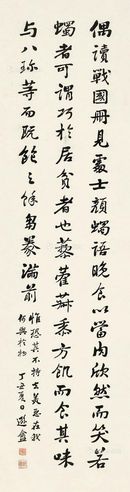 偶讀戰國冊見處士顏蠋語晚食以當肉欣然而笑若
蠋者可謂巧於居貧者也藜藿菽黍方飢而食其味
与八珍等而既飽之餘芻豢滿前
惟恐其不持去美惡在我
何與於物 丁丑夏日